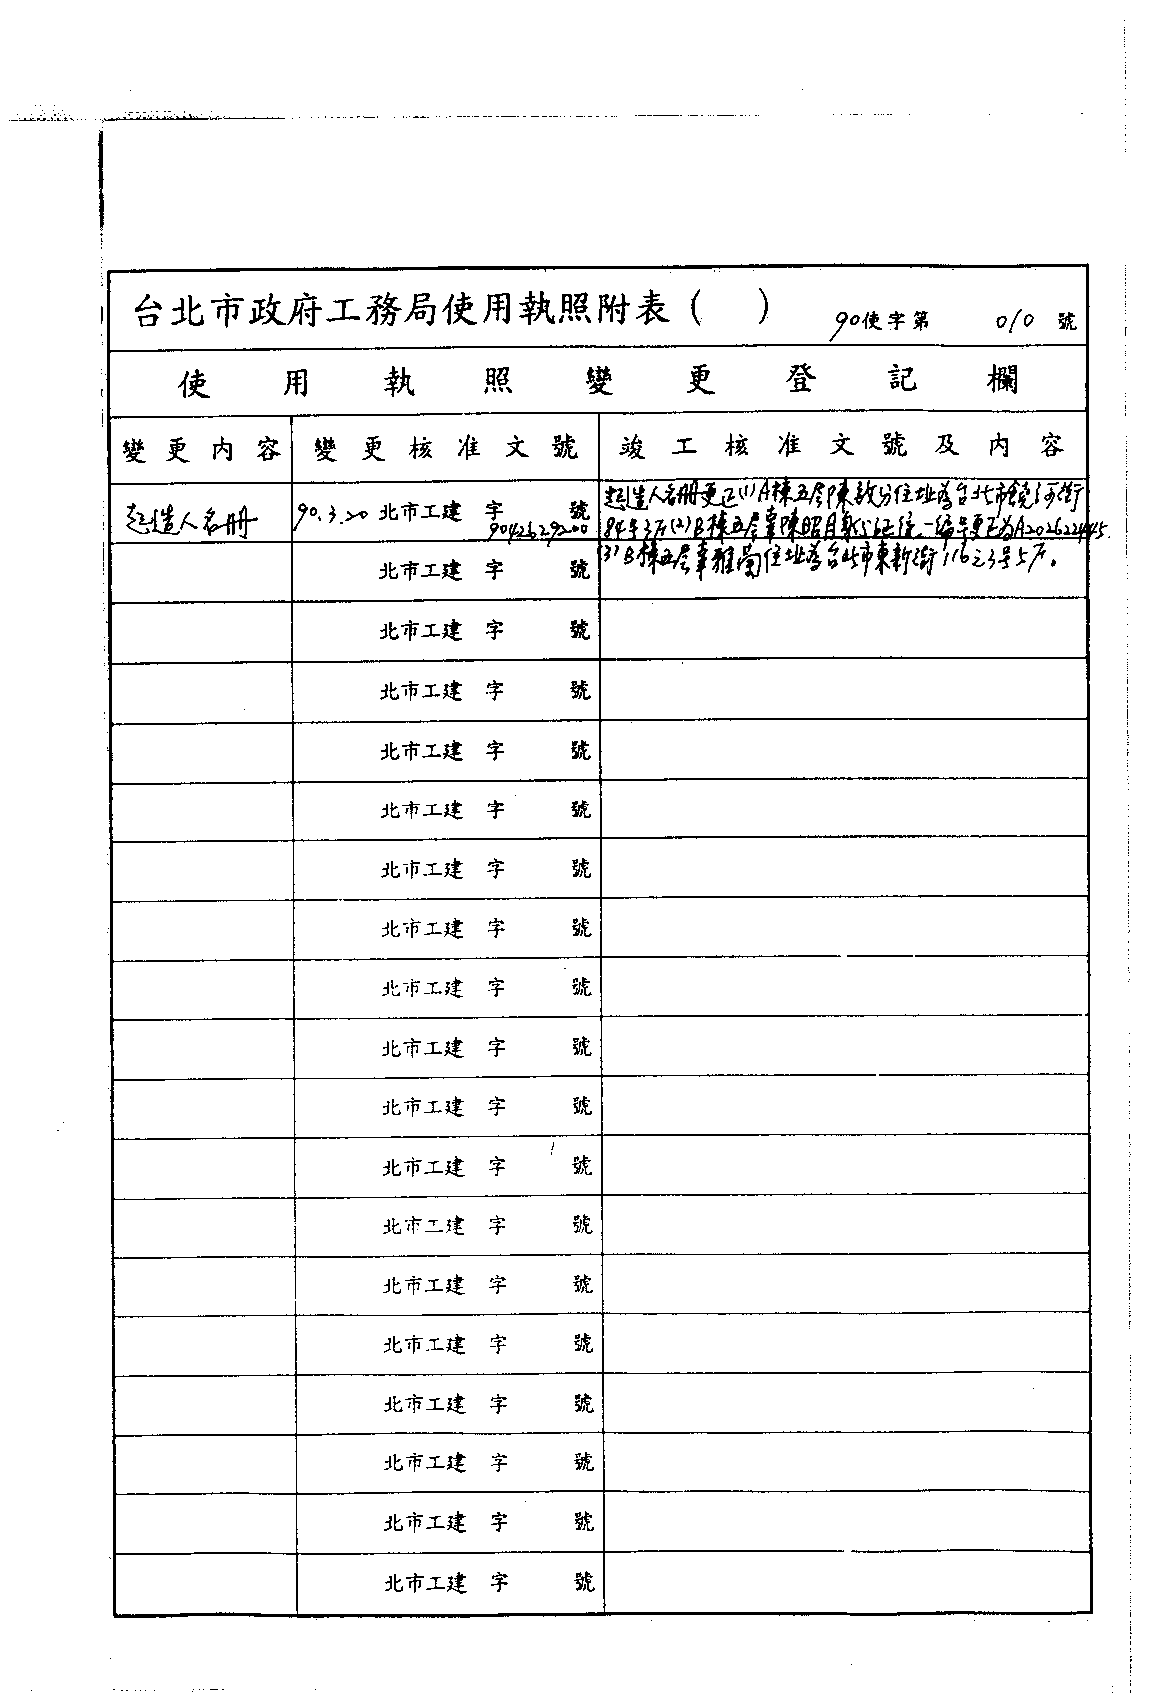 台北市政府工務局使用執照附表（　）　90使字第　010　號
使用執照變更登記欄
變更內容　變更核准文號　竣工核准文號及內容
起造人名冊　90.3.20 北市工建　字　9042629200　號　起造人名冊更正(1)A棟五層陳敦分住址為台北市饒河街
84號3F(2)B棟五層韋陳昭月身份證統一編號更正為A202622445.
北市工建　字　號　(3)B棟五層韋雅 住址為台北市東新街116之3號5F。
北市工建　字　號
北市工建　字　號
北市工建　字　號
北市工建　字　號
北市工建　字　號
北市工建　字　號
北市工建　字　號
北市工建　字　號
北市工建　字　號
北市工建　字　號
北市工建　字　號
北市工建　字　號
北市工建　字　號
北市工建　字　號
北市工建　字　號
北市工建　字　號
北市工建　字　號